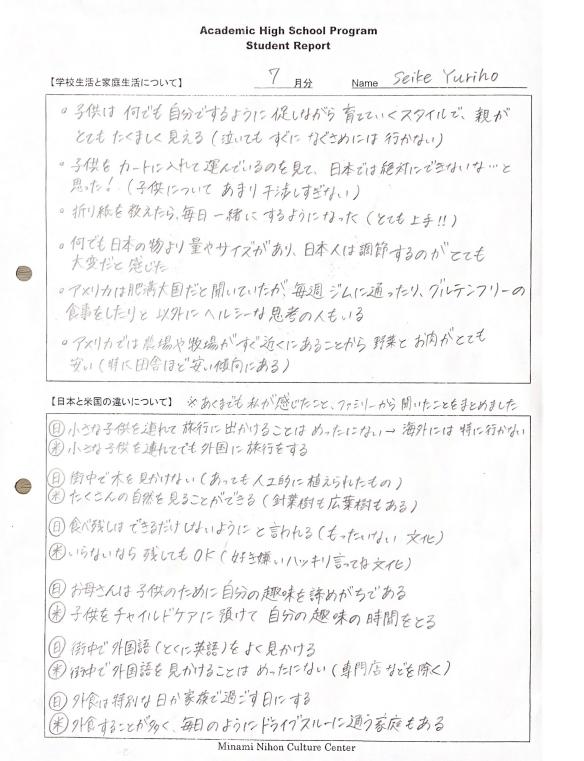 Academic High School Program
Student Report
【学校生活と家庭生活について】 7 月分 Name Seike Yuriho
。子供は 何でも 自分でするように 促しながら 育てていくスタイルで、親が
とても たくましく見える (泣いても すぐに なぐさめには 行かない)
。子供を カートに入れて 運んでいるのを見て、日本では絶対にできないな…と
思った! (子供について あまり干渉しすぎない)
。折り紙を教えたら、毎日 一緒に するようになった (とても上手!!)
。何でも日本の物より 量やサイズがあり、日本人は調節するのが とても
大変だと 感じた
。アメリカは肥満大国だと聞いていたが、毎週 ジムに通ったり、グルテンフリーの
食事をしたりと 以外に ヘルシーな思考の人もいる
。アメリカでは農場や牧場が すぐ近くにあることから 野菜と お肉が とても
安い (特に田舎ほど安い傾向にある)
【日本と米国の違いについて】 ※あくまでも 私が感じたこと、ファミリーから 聞いたことをまとめました
㊐ 小さな子供を連れて 旅行に出かけることは めったにない → 海外には 特に行かない
㊍ 小さな子供を連れてでも 外国に 旅行をする
㊐ 街中で 木を見かけない (あっても人工的に植えられたもの)
㊍ たくさんの自然を見ることができる (針葉樹も広葉樹もある)
㊐ 食べ残しは できるだけしないように と言われる (もったいない 文化)
㊍ いらないなら 残しても OK (好き嫌いハッキリ言ってな文化)
㊐ お母さんは 子供のために 自分の 趣味を 諦めがちである
㊍ 子供をチャイルドケアに 預けて 自分の 趣味の 時間をとる
㊐ 街中で外国語 (とくに英語) を よく見かける
㊍ 街中で 外国語を 見かけることは めったにない (専門店などを除く)
㊐ 外食は特別な日か家族で過ごす日にする
㊍ 外食することが多く、毎日のようにドライブスルーに通う家庭もある
Minami Nihon Culture Center